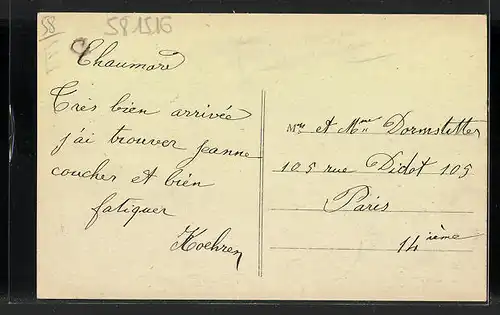 58
581516
Chaumard
Tres bien arrivée
j'ai trouver jeanne
coucher et bien
fatiguer
Koehren
Mr et Mme Dormstetter
105 rue Didot 105
Paris
14 ième